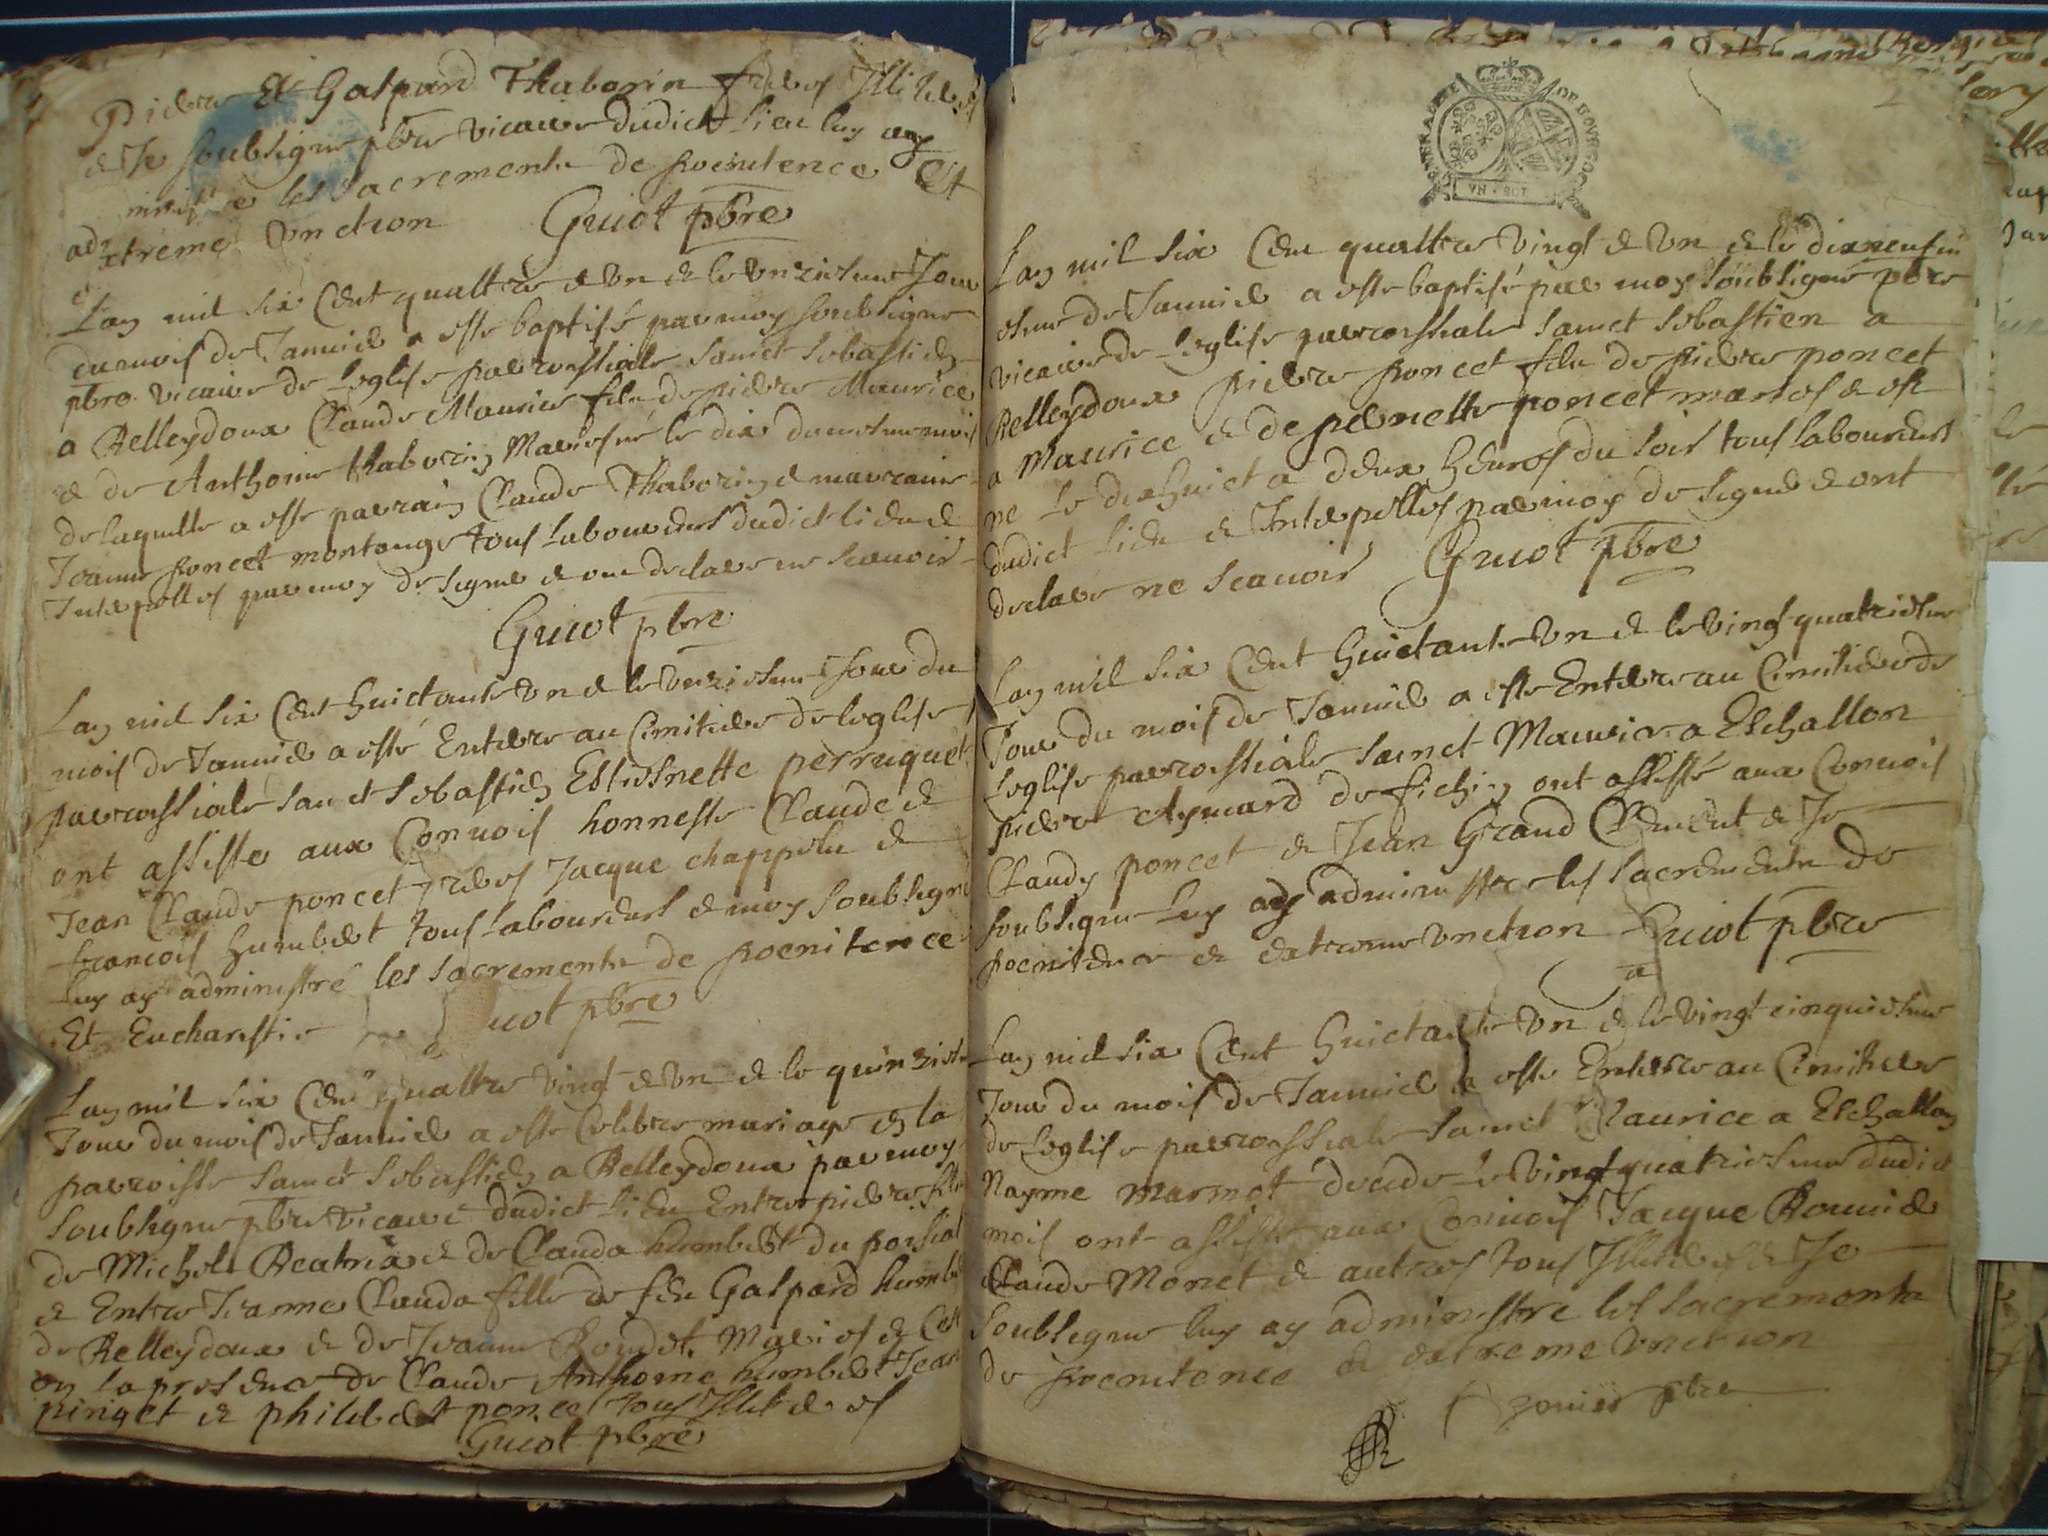 Pierre Et Gaspard Thaborin freres Illiteres
& Je soubsigne pbre vicaire dudict lieu luy ay
administre les sacrements de poenitence Et
extreme Unction Guiot pbre
Lan mil six Cent quattre & Un & le Unziesme Jour
du mois de Januier a esté baptisé par moy soubsigne
pbre vicaire de Leglise parrossiale sainct sebastien
a Belleydoux Claude Maurice filz de pierre Maurice
& de Anthoine thaborin Maries né le dix du mesme mois
de laquelle a este parrain Claude Thaborin & marraine
Jeanne poncet montange tous laboureurs dudict lieu &
Interpelles par moy de signer & ont declare ne scauoir
Guiot pbre
Lan mil six Cent huictante Un & le Unziesme Jour du
mois de Januier a esté Enterre au Cimitiere de leglise
parrossiale sainct sebastien Estiesnette perruquet
ont assiste aux Conuois honneste Claude &
Jean Claude poncet freres Jacque chappelu &
francois humbert tous laboureurs & moy soubsigne
luy ay administré les sacrements de poenitence
Et Eucharistie Guiot pbre
Lan mil six Cent quattre vingt & Un & le quinziesme
Jour du mois de Januier a este Celebre mariage en la
parroisse sainct sebastien a Belleydoux par moy
soubsigne pbre vicaire dudict lieu Entre pierre filz
de Michel Beatrix & de Clauda humbert du porsiat
& Entre Jeanne Clauda fille de feu Gaspard humbert
de Belleydoux & de Jeanne Maries & Cest
en la presence de Claude Anthoine humbert Jean
pinget & philibert poncet tous Illiteres
Guiot pbre
Lan mil six Cent quattre vingt & Un & le dixneufui
esme de Januier a este baptisé par moy soubsigne pbre
vicaire de Leglise parrossiale sainct sebastien a
Belleydoux pierre poncet filz de pierre poncet
a Maurice & de pernette poncet maries & est
ne le dixhuict a deux heures du soir tous laboureurs
dudict lieu & Interpelles par moy de signer & ont
declare ne scauoir Guiot pbre
Lan mil six Cent huictante Un & le vingt quatriesme
Jour du mois de Januier a este Enterre au Cimitiere de
Leglise parrossiale sainct Maurice a Eschallon
pierre Aymard de fichin ont assisté aux Conuois
Claudy poncet & Jean Grand Clement & Je
soubsigne luy ay administre les sacrements de
poenitence & extreme unction Guiot pbre
Lan mil six Cent huictante Un & le vingt cinquiesme
Jour du mois de Januier a este Enterre au Cimitiere
de Leglise parrossiale sainct Maurice a Eschallon
Nayme Marmet decede le vingt quatriesme dudict
mois ont assiste aux Conuois Jacque
Claude Monet & autres tous Illiteres & Je
soubsigne luy ay administre les sacrements
de poenitence & extreme Unction
pbre